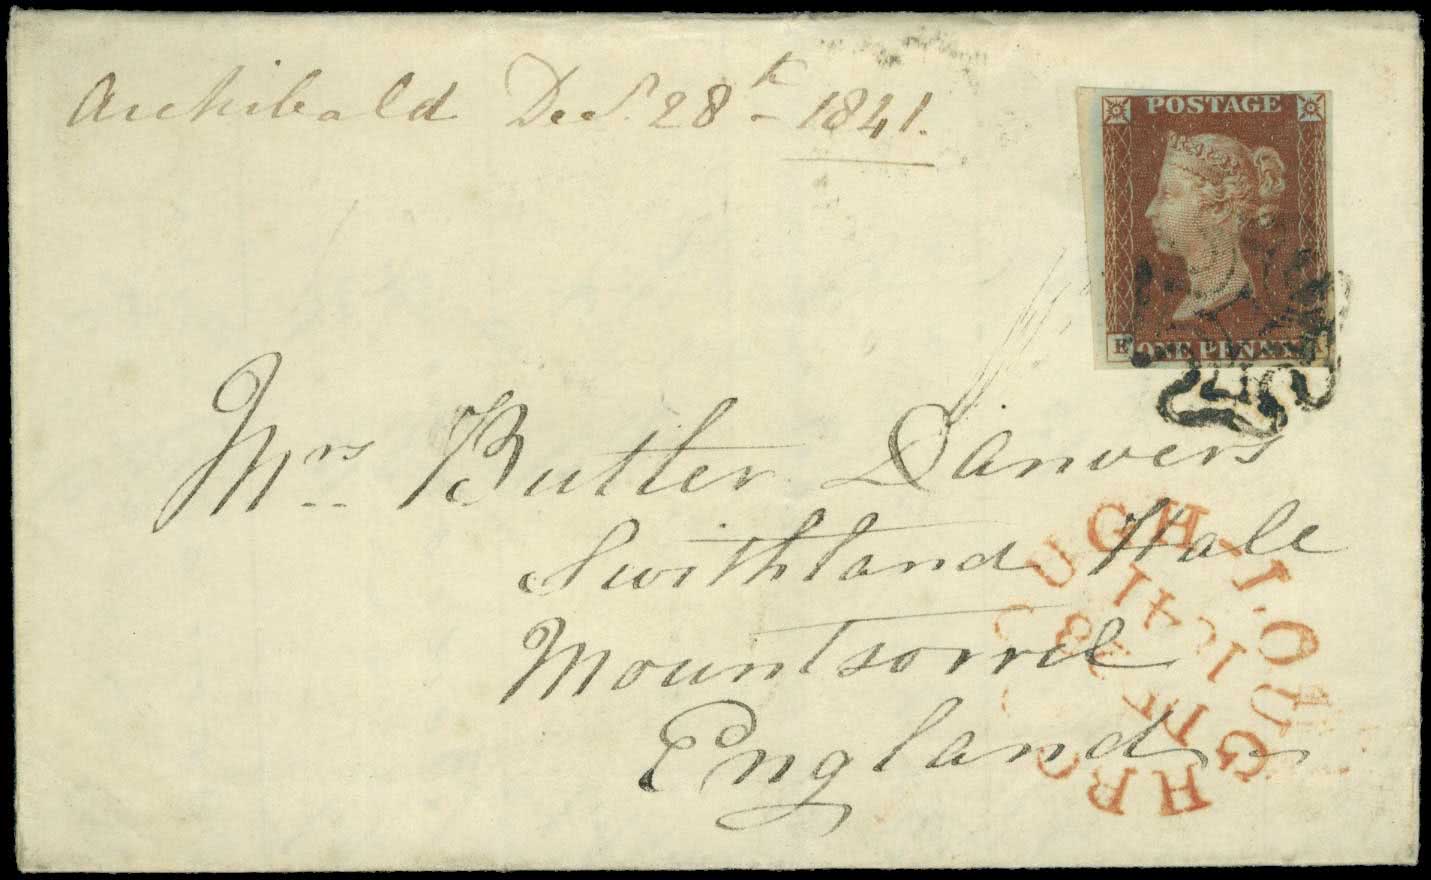 Archibald Dec. 28th - 1841.
POSTAGE
E ONE PENNY A
Mrs Butler Danvers
Swithland Hall
Mountsorrel
England
LOUGHBOROUGH
1841